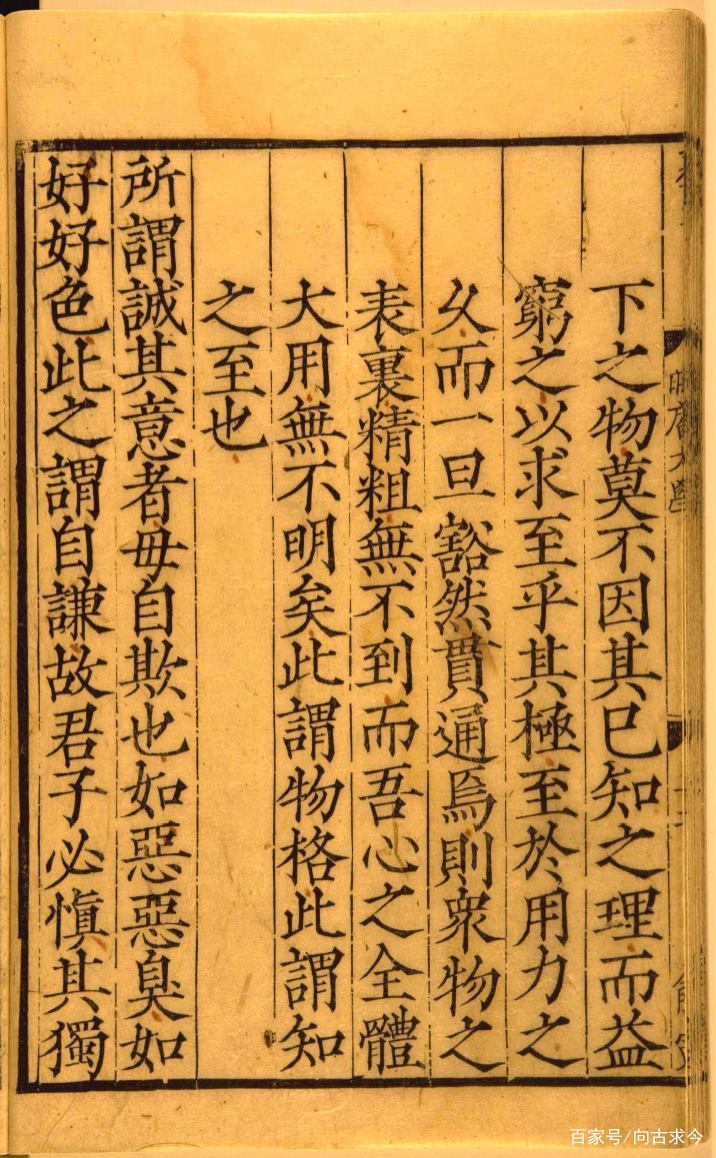 下之物莫不因其已知之理而益
窮之以求至乎其極至於用力之
乆而一旦豁然貫通焉則衆物之
表裏精粗無不到而吾心之全體
大用無不明矣此謂物格此謂知
之至也
所謂誠其意者毋自欺也如惡惡臭如
好好色此之謂自謙故君子必慎其獨
百家号/向古求今